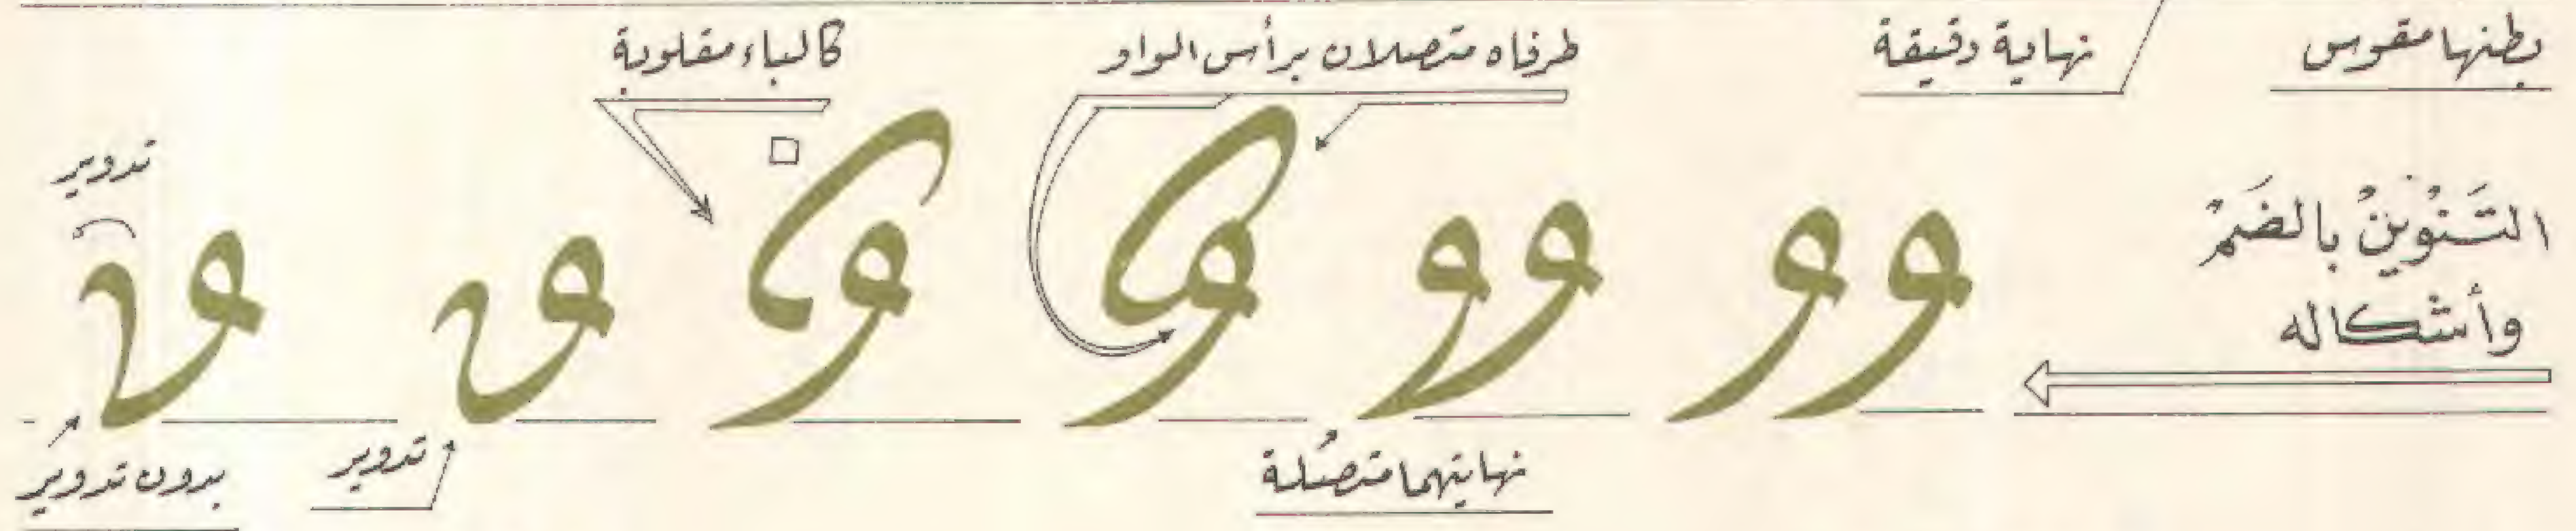 بطنها مقوس
نهاية دقيقة
طرفاه متصلان برأس الواو
كالباء مقلوبة
تدوير
التَنْوِينُ بالضَمْ
وأشكاله
نهايتهما متصلة
تدوير
بدون تدوير